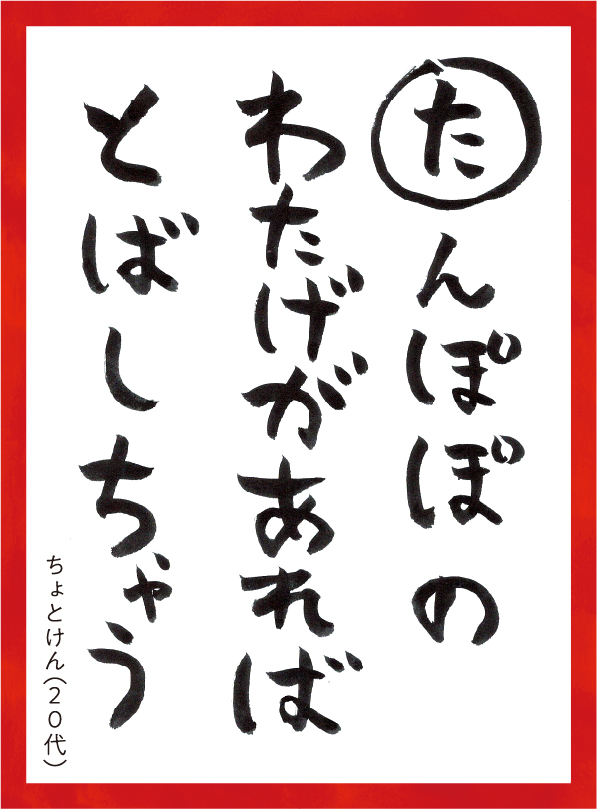 たんぽぽの
わたげがあれば
とばしちゃう
ちょとけん（２０代）